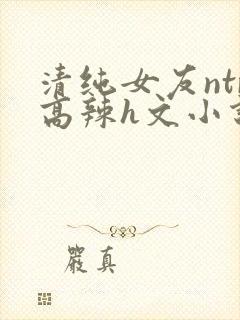 清纯女友nt
高辣h文小
嚴真